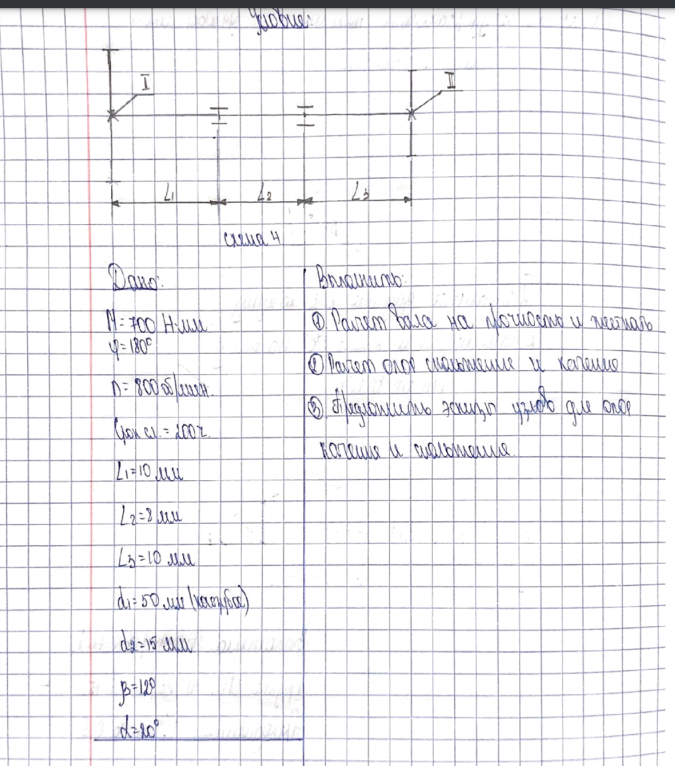 Условие:
I
II
L1
L2
L3
схема 4
Дано:
M=700 Н·мм
φ=180°
n=800 об/мин.
Lдол =200ч.
L1=10 мм
L2=8 мм
L3=10 мм
d1=50 мм (косозубое)
d2=15 мм
β=12°
α=20°.
Выполнить:
① Расчет вала на прочность и жесткость
② Расчет опор скольжения и качения
③ Предложить эскизы узлов для опор
качения и скольжения.